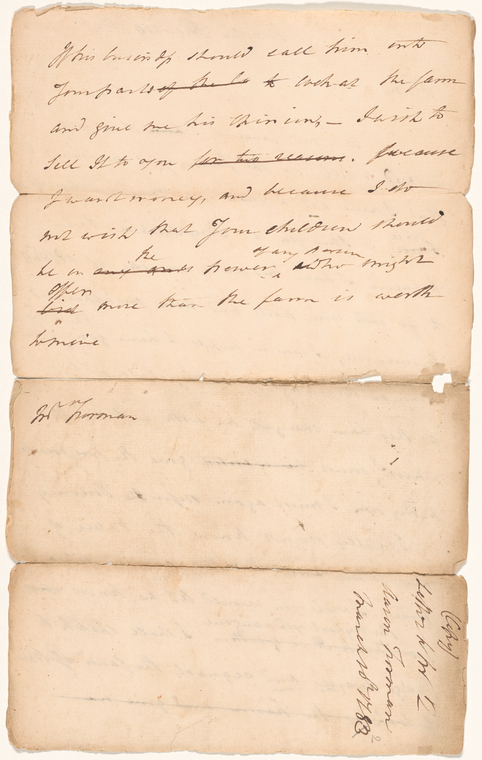 If his business should call him into
Your parts of the Co to look at the farm
and give me his opinion – I wish to
Sell It to You for two reasons. because
I want money, and because I do
not wish that Your children should
be in any one's the power of any person who might
bid offer more than the farm is worth
to mine
Mr Forman
(Copy)
Letter to Mr
Aaron Forman
March 18th 1783